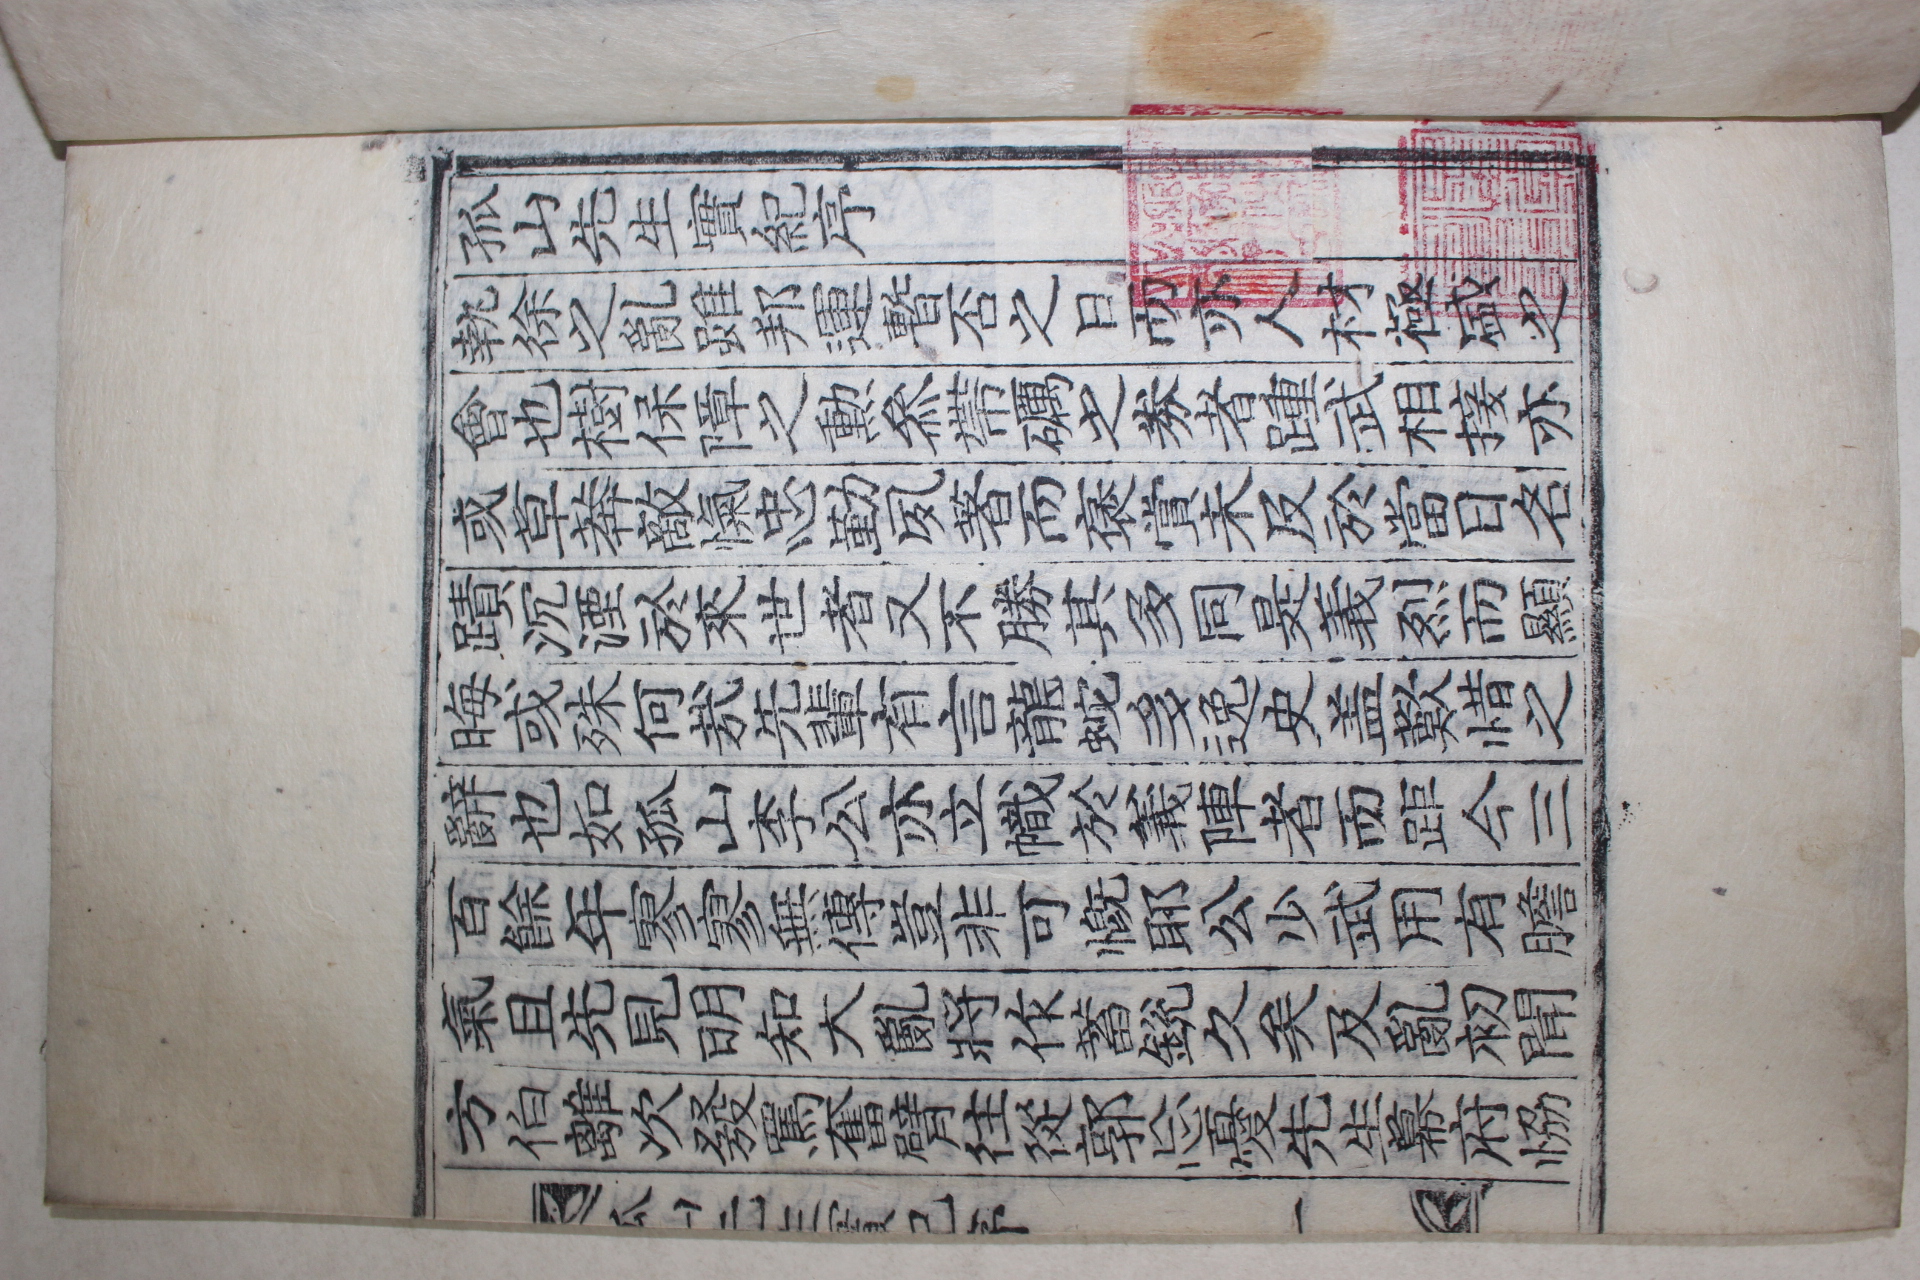 孤山先生實紀序
執徐之亂雖邦運暫否之日而亦人材極盛之
會也樹保障之勳參帶礪之券者踵武相接亦
或草莽敵愾忠勤夙著而褒賞未及於當日名
蹟沉湮於來世者又不勝其多同是義烈而顯
晦或殊何哉先輩有言龍蛇多逸史盖歎惜之
辭也如孤山李公亦立幟於義陣者而距今三
百餘年寥寥無傳豈非可慨耶公少武用有膽
氣且先見明知大亂將作蓄銳久矣及亂初聞
方伯離次發罵奮臂往從郭忘憂先生幕府協
孤山先生實紀序 一